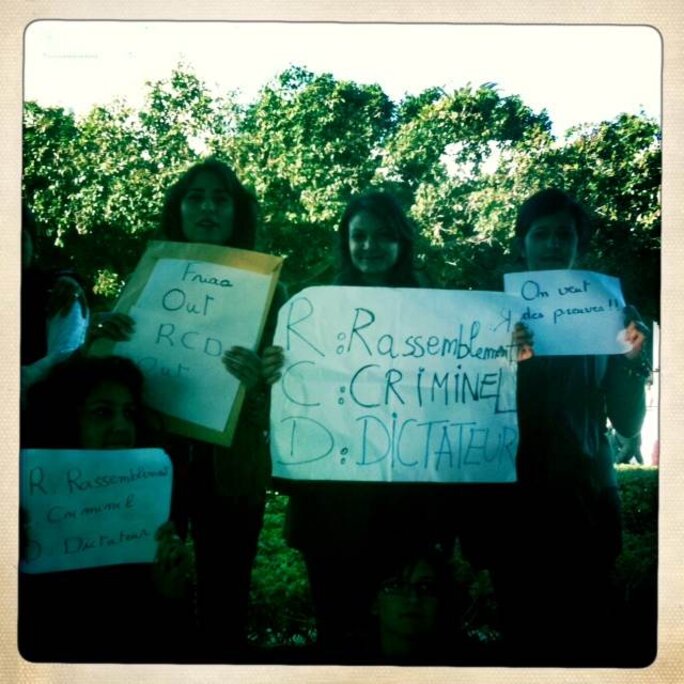 Out
RCD
Out
R : Rassemblement
C : CRIMINEL
D : DICTATEUR
On veut
des preuves !!
R Rassemblement
Criminel
D Dictateur